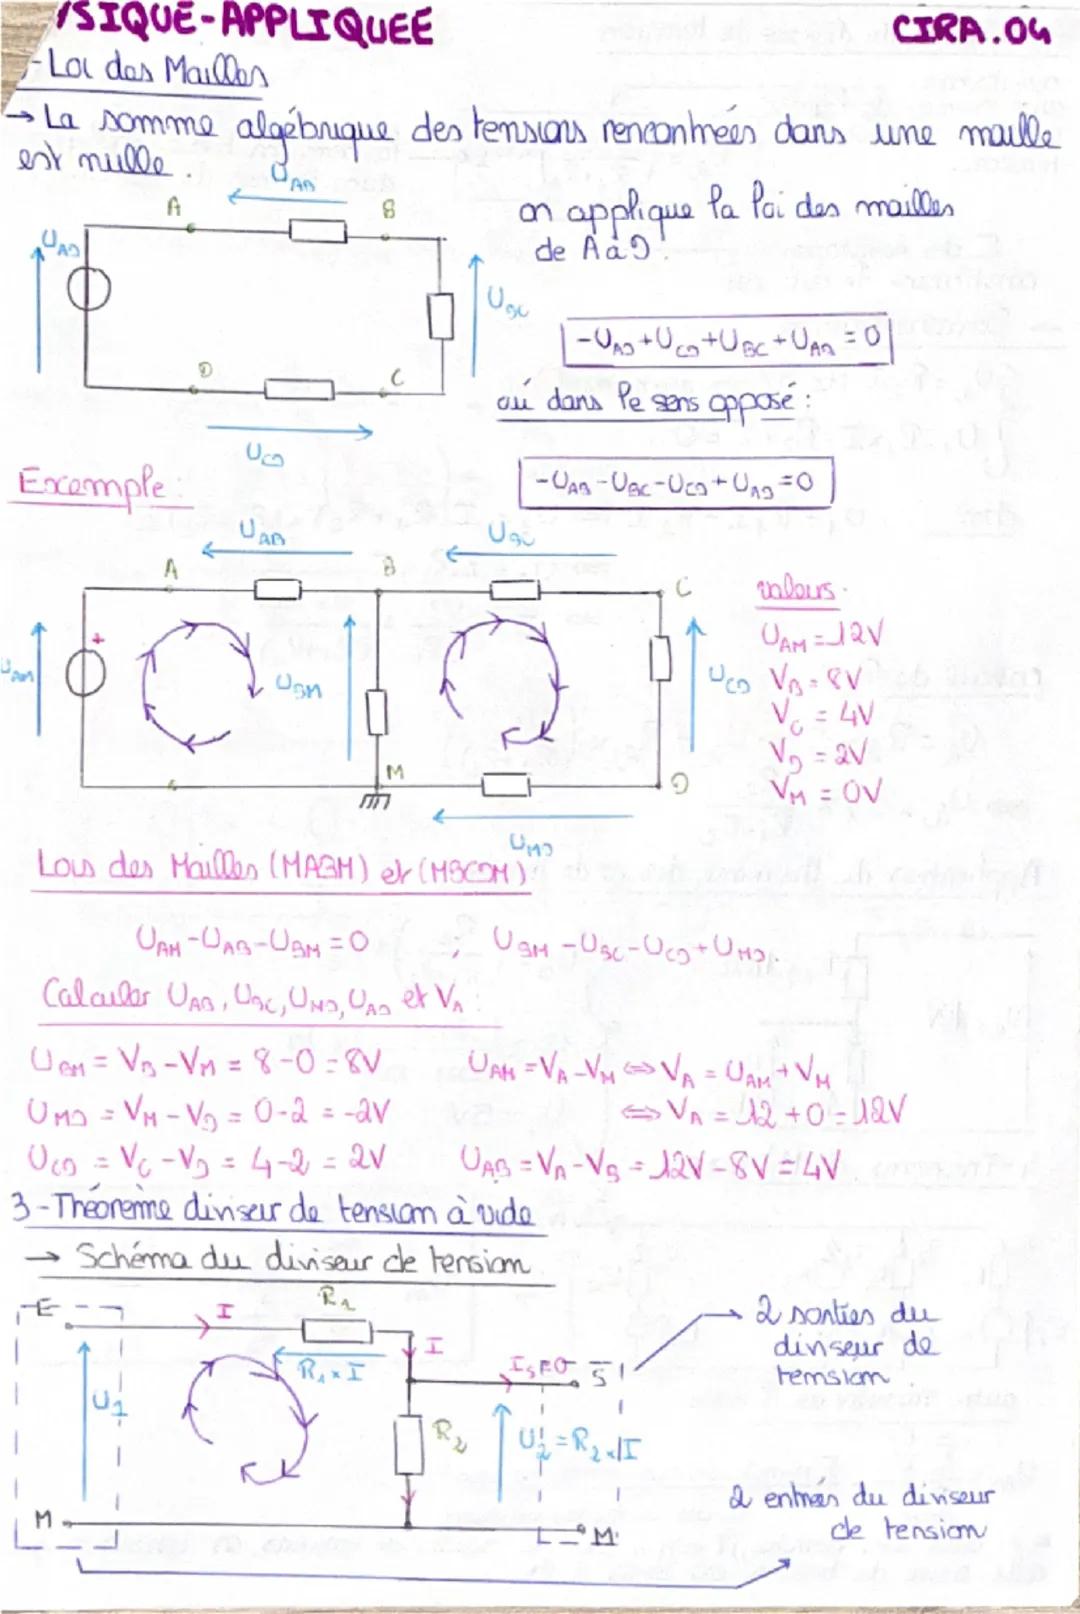 YSIQUE-APPLIQUEE
CIRA.04
-Loi des Mailles
→ La somme algébrique des tensions rencontrées dans une maille
est nulle.
U_AB
A
B
U_AD
U_BC
D
C
U_CD
on applique la loi des mailles
de A à D.
-U_AD+U_CD+U_BC+U_AB=0
ou dans le sens opposé :
-U_AB-U_BC-U_CD+U_AD=0
Exemple :
U_AB
U_BC
A
B
C
+
U_AM
U_BM
U_CD
M
D
U_MD
valeurs.
U_AM=12V
V_B=8V
V_C=4V
V_D=2V
V_M=0V
Lois des Mailles (MABM) et (MBCDM)
U_AM-U_AB-U_BM=0 , U_BM-U_BC-U_CD+U_MD
Calculer U_AB, U_BC, U_MD, U_AD et V_A :
U_BM=V_B-V_M=8-0=8V
U_AM=V_A-V_M⇔V_A=U_AM+V_M
U_MD=V_M-V_D=0-2=-2V
⇔V_A=12+0=12V
U_CD=V_C-V_D=4-2=2V
U_AB=V_A-V_B=12V-8V=4V
3-Théoreme diviseur de tension à vide
→ Schéma du diviseur de tension
E
I
R1
I
R1×I
Is=0
S
U1
R2
U2=R2×I
M
M
2 sorties du
diviseur de
tension
2 entrées du diviseur
de tension